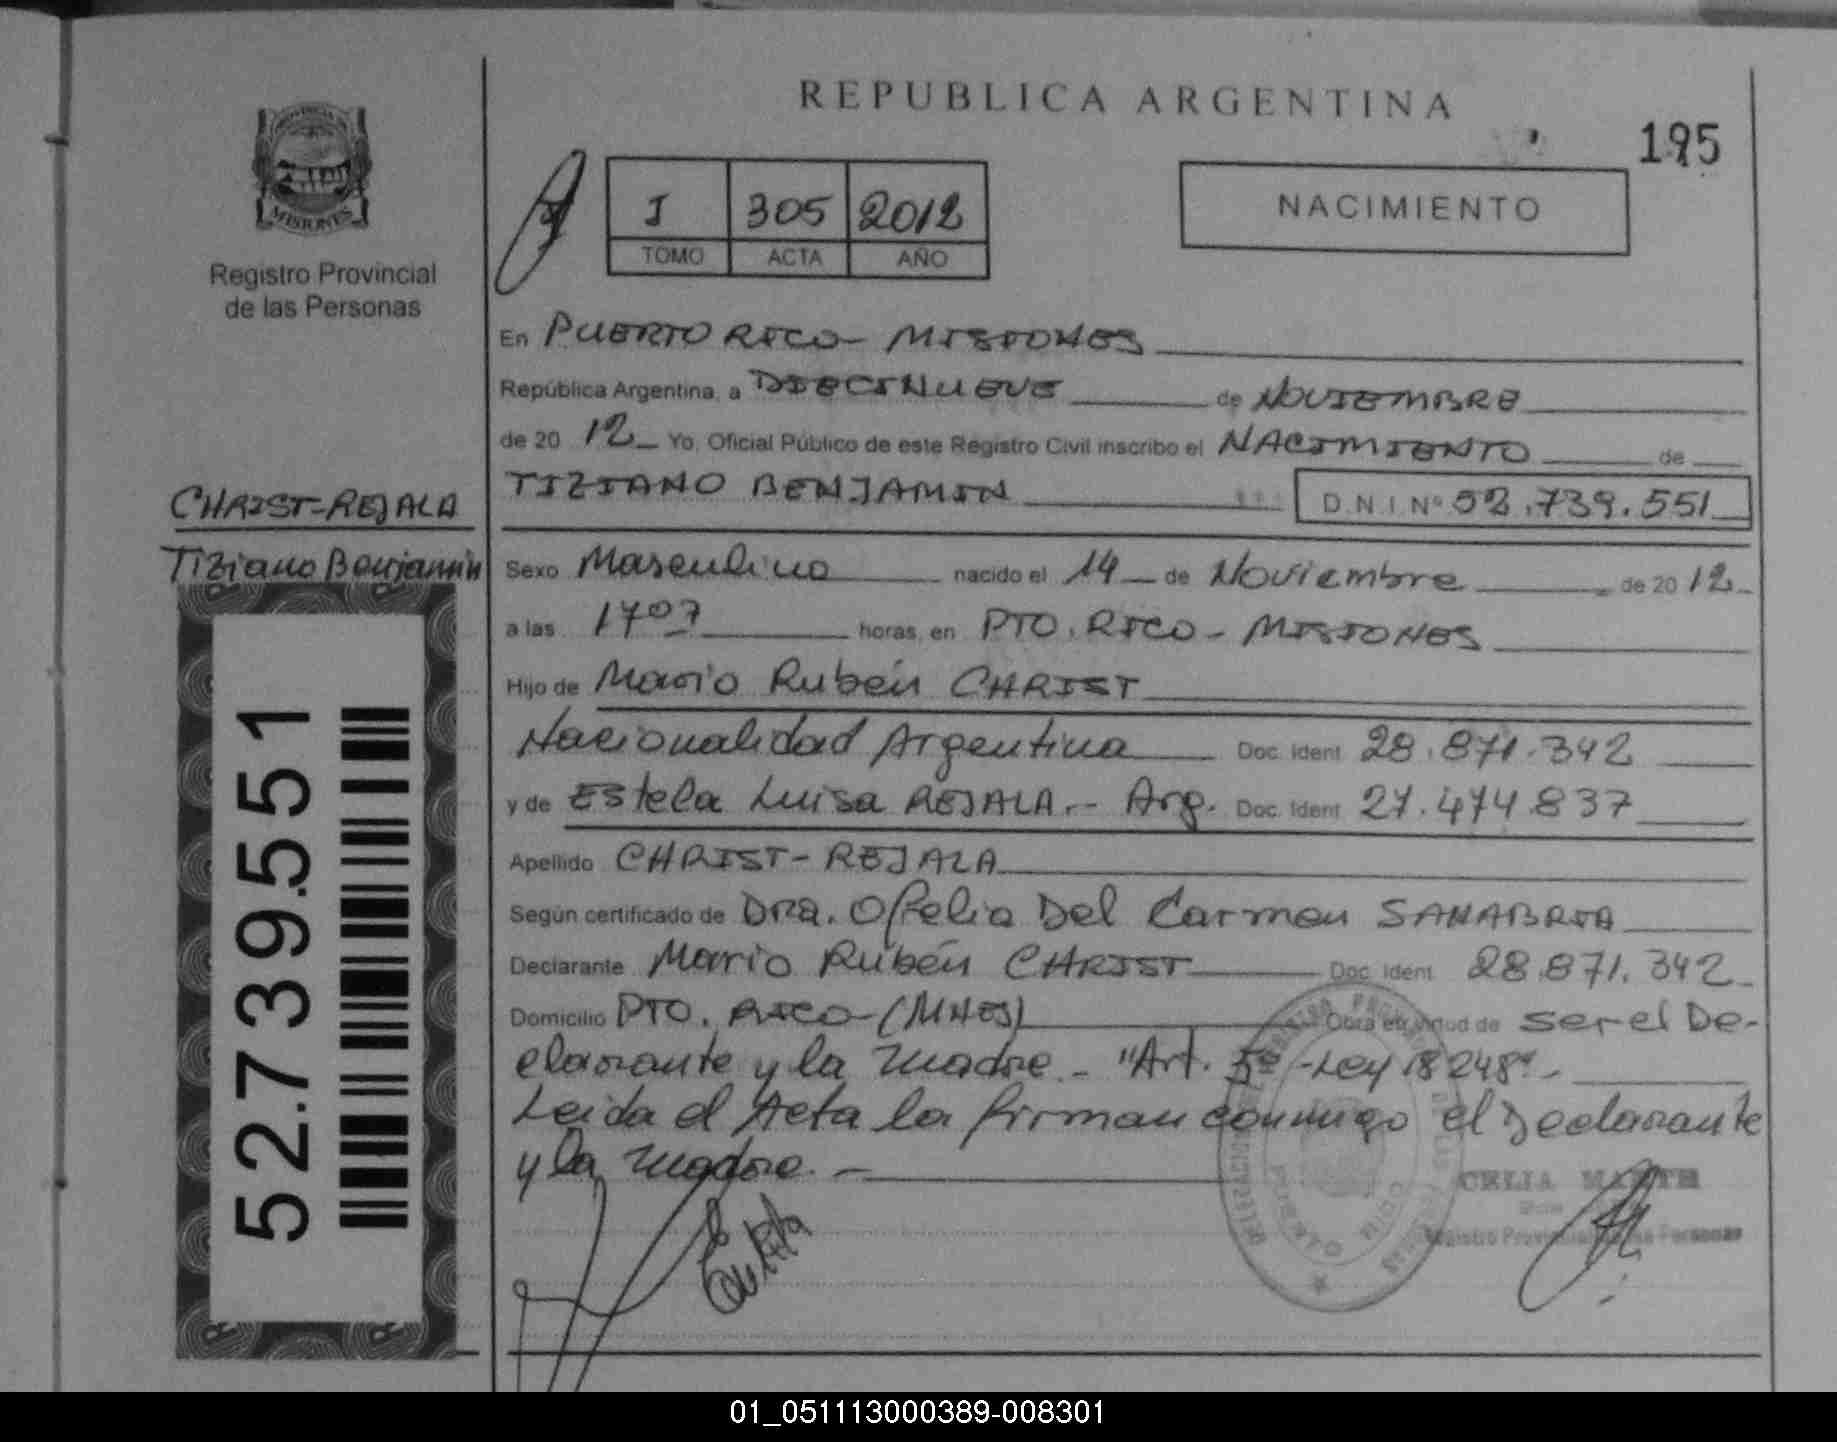 REPUBLICA ARGENTINA
195
PROVINCIA DE
MISIONES
Registro Provincial
de las Personas
I 305 2012
TOMO ACTA AÑO
NACIMIENTO
En PUERTO RICO - MISIONES
República Argentina, a DIECINUEVE de NOVIEMBRE
de 20 12 Yo, Oficial Público de este Registro Civil inscribo el NACIMIENTO de
TIZIANO BENJAMIN D.N.I. Nº 52.739.551
CHRIST-REJALA
Tiziano Benjamin
52.739.551
Sexo Masculino nacido el 14 de Noviembre de 20 12
a las 17 07 horas, en PTO. RICO - MISIONES
Hijo de Mario Rubén CHRIST
Nacionalidad Argentina Doc. Ident 28.871.342
y de Estela Luisa REJALA.- Arg. Doc. Ident 27.474.837
Apellido CHRIST-REJALA
Según certificado de Dra. Ofelia Del Carmen SANABRIA
Declarante Mario Rubén CHRIST Doc. Ident 28.871.342
Domicilio PTO. RICO-(MNES) Obra en virtud de ser el De-
clarante y la Madre.- "Art. 5º-Ley 18248"-
Leida el Acta la firman conmigo el Declarante
y la Madre.-
CELIA
Registro Provincial de las Personas
PUERTO RICO
01_051113000389-008301